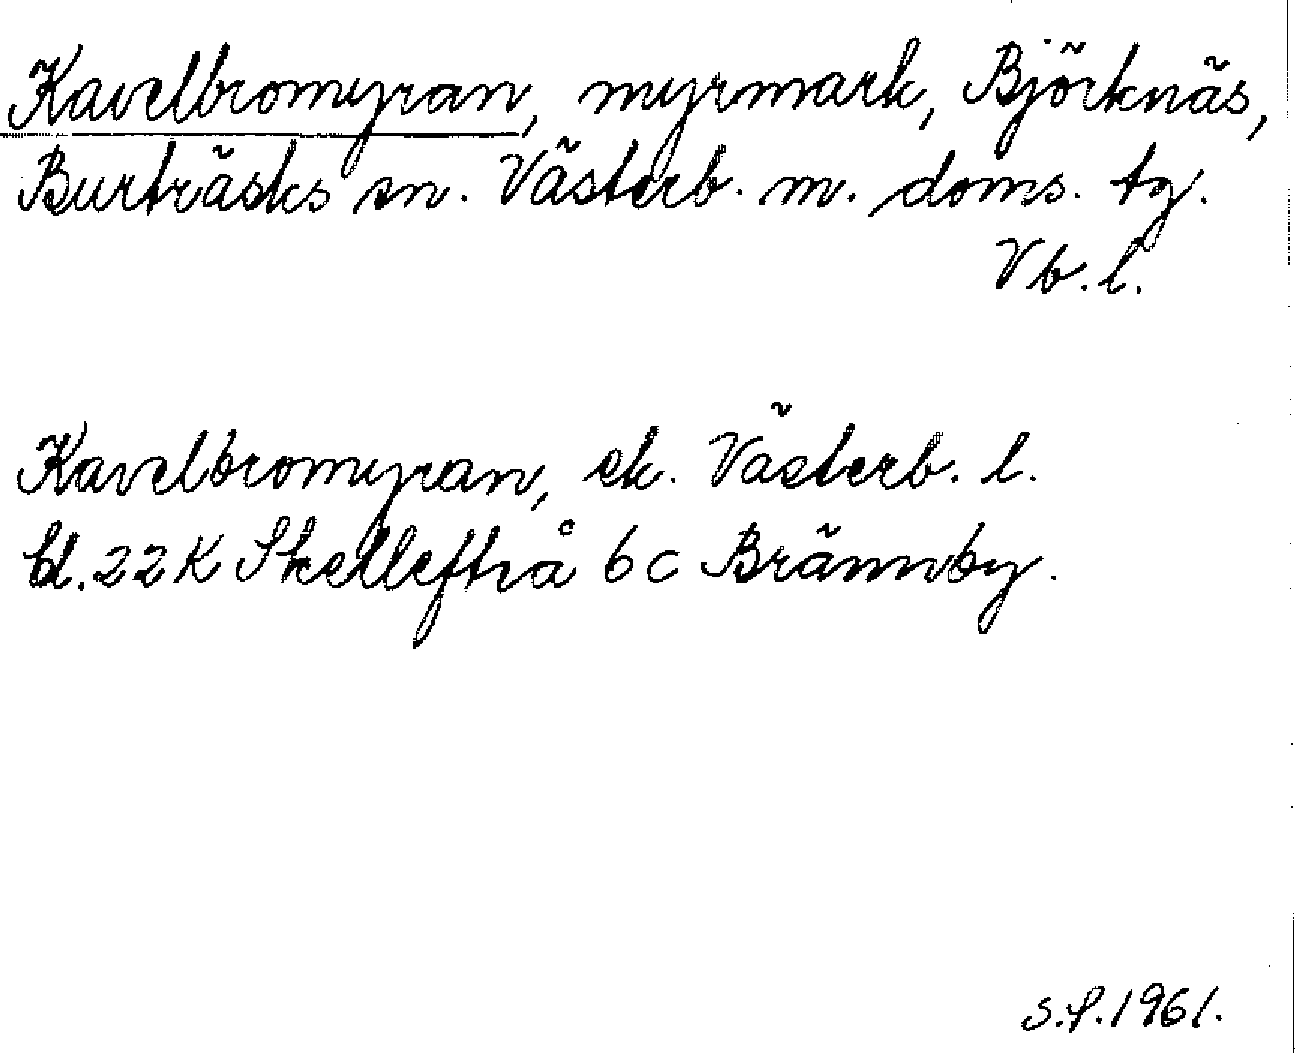 Kavelbromyran, myrmark, Björknäs,
Burträsks sn. Västerb. m. doms. tg.
Vb. l.
Kavelbromyran, ek. Västerb. l.
bl. 22K Skellefteå 6c Brännby.
S.P. 1961.